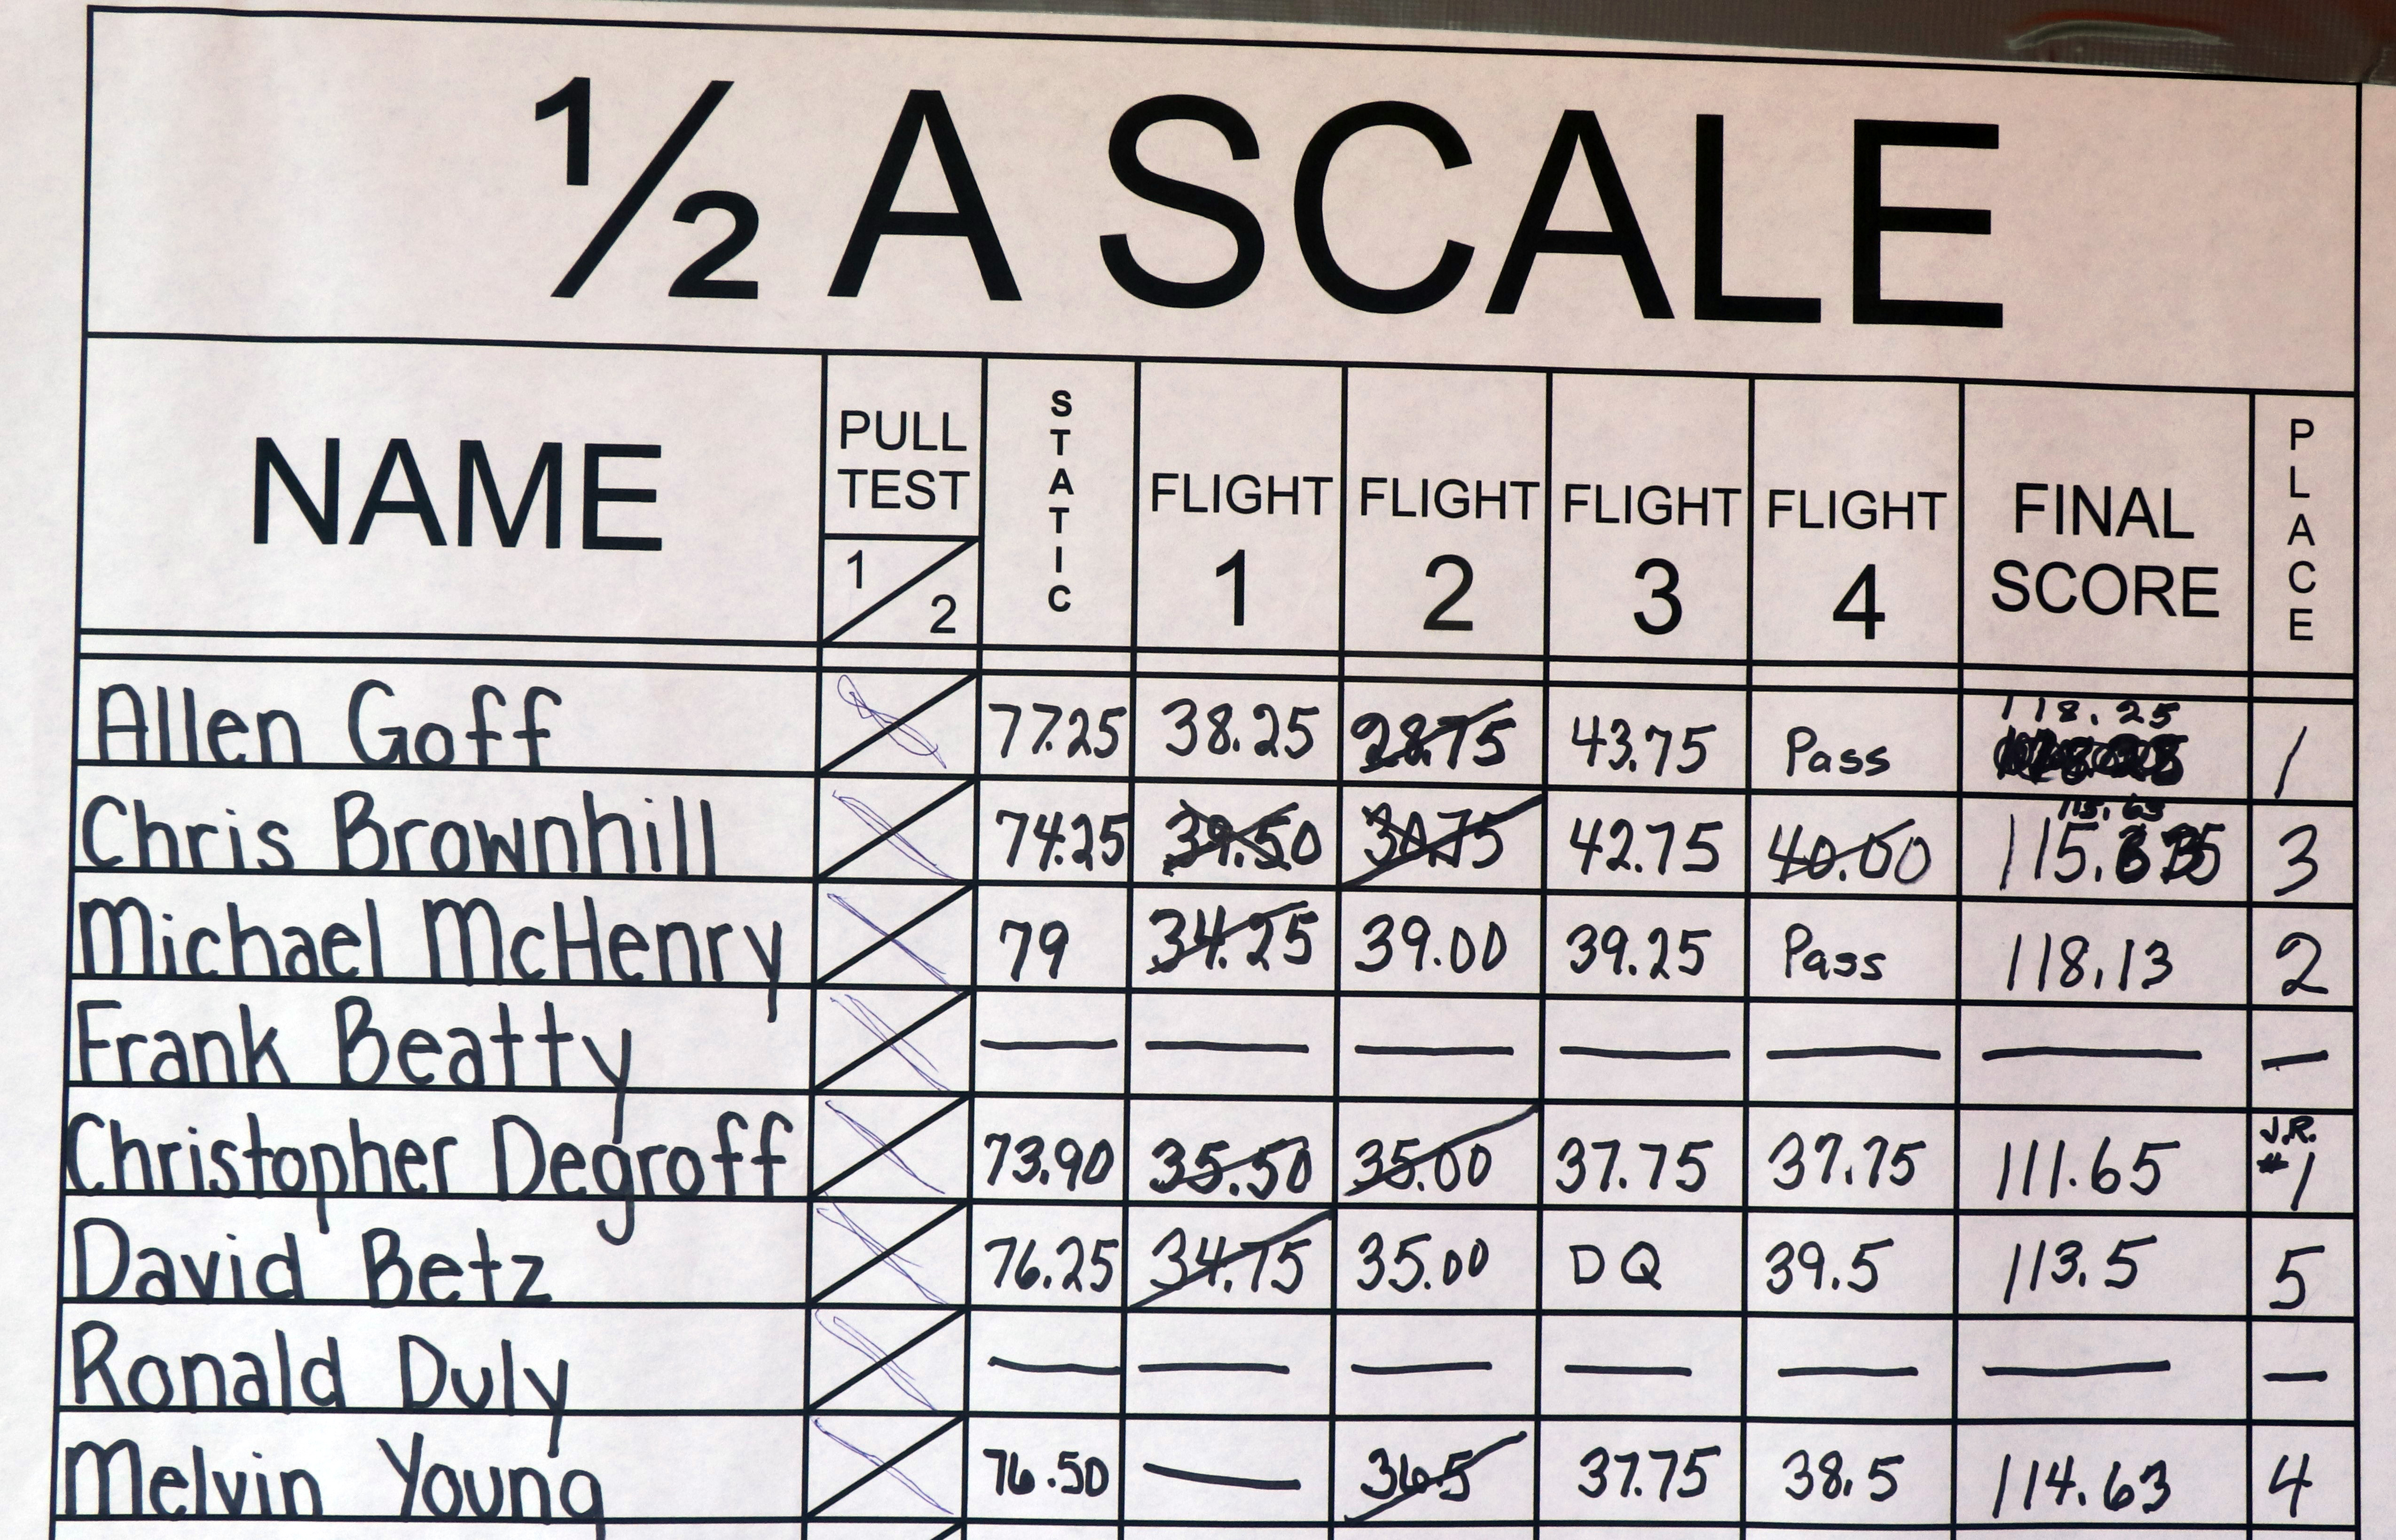 ½ A SCALE
NAME PULL TEST 1/2 STATIC FLIGHT 1 FLIGHT 2 FLIGHT 3 FLIGHT 4 FINAL SCORE PLACE
Allen Goff 77.25 38.25 28.75 43.75 Pass 118.25 1
Chris Brownhill 74.25 39.50 30.75 42.75 40.00 115.63 3
Michael McHenry 79 34.25 39.00 39.25 Pass 118.13 2
Frank Beatty — — — — — — —
Christopher Degroff 73.90 35.50 35.00 37.75 37.75 111.65 J.R. #1
David Betz 76.25 34.75 35.00 DQ 39.5 113.5 5
Ronald Duly — — — — — — —
Melvin Young 76.50 — 36.5 37.75 38.5 114.63 4